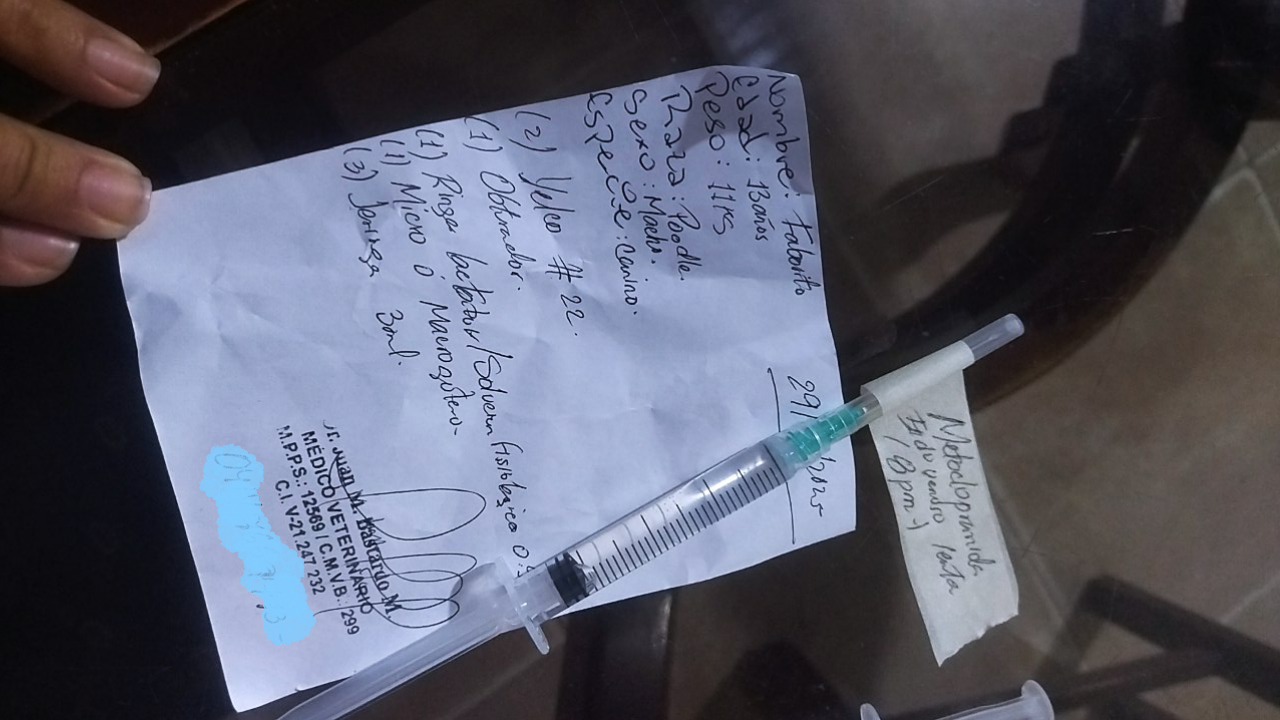 29/ /2025
Nombre: Faborito
Edad: 13años
Peso: 11KG
Raza: Poodle.
Sexo: Macho.
Especie: Canino.
(2) Yelco # 22.
(1) Obturador.
(1) Ringer lactato/Solucion fisiologica 0.9
(1) Micro o Macrogotero.
(3) Jeringa 3ml.
Juan M. Bastardo M
MÉDICO VETERINARIO
M.P.P.S.: 12569 / C.M.V.B.: 299
C.I. V-21.247.232
Metoclopramida
Endovenoso lenta
(8pm)